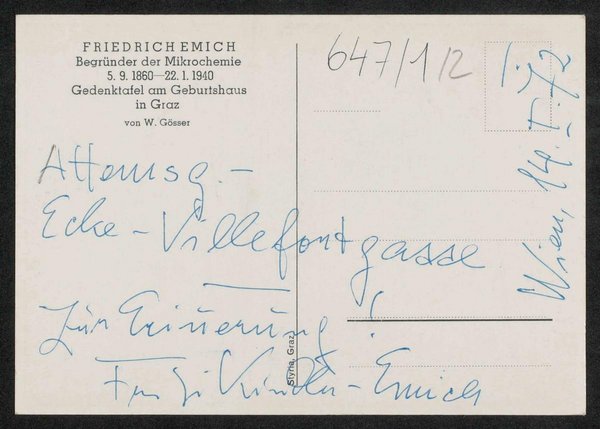 FRIEDRICH EMICH
Begründer der Mikrochemie
5. 9. 1860—22. 1. 1940
Gedenktafel am Geburtshaus
in Graz
von W. Gösser
647/1/2
Attemsg.-
Ecke-Villefortgasse
Zur Erinnerung!
Emich
Styria, Graz
Wien, 14.